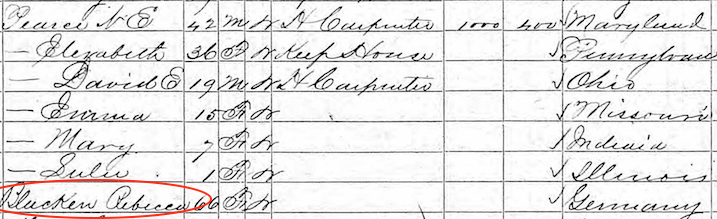 Pearce N E 42 M W H Carpenter 1000 400 Maryland
— Elizabeth 36 F W Keep House Pennsylvan
— David E 19 M W H Carpenter Ohio
— Emma 15 F W Missouri
— Mary 7 F W Indiaid
— Lulu 1 F W Illinois
Blucken Rebecca 66 F W Germany